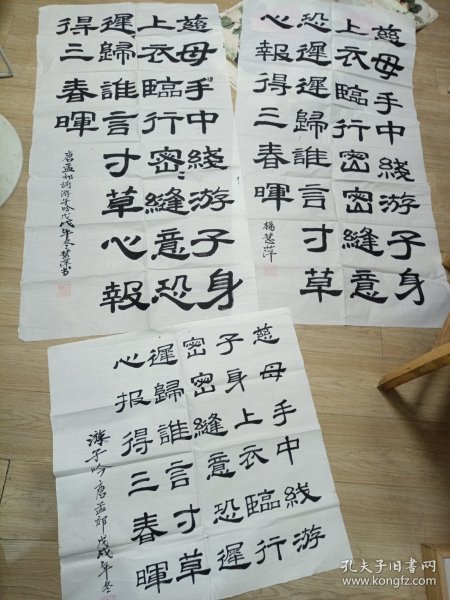 慈母手中綫游子身
上衣臨行密縫意恐
遲歸誰言寸草心報
得三春暉
唐孟郊詩游子吟戊戌年冬慧萍书
慈母手中綫游子身
上衣臨行密密縫意
恐遲遲歸誰言寸草
心報得三春暉
楊慧萍
慈母手中綫游
子身上衣臨行
密密縫意恐遲
遲歸誰言寸草
心报得三春暉
游子吟唐孟郊戊戌年冬
孔夫子旧书网